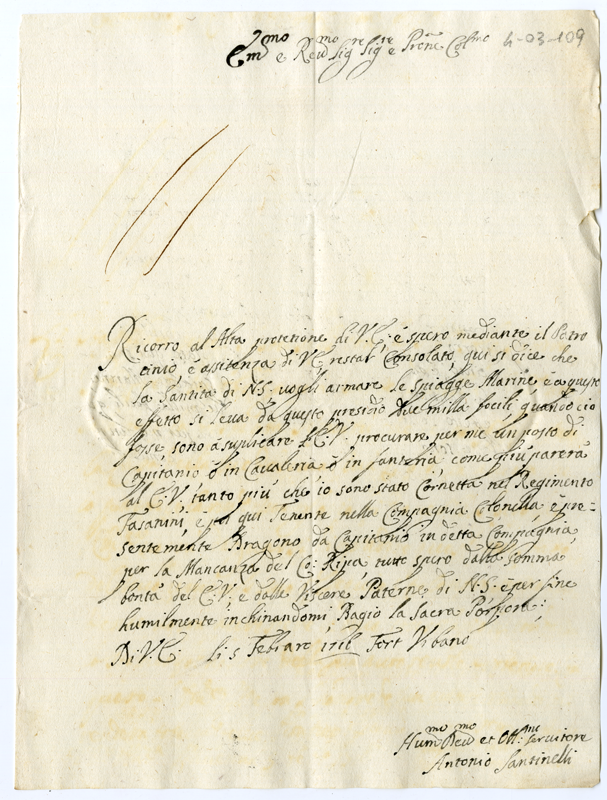 4-03-109
Em.mo e Reu.mo Sig.re Sig.re e Prñe Col.mo
Ricorro al Alta protetione di V.E. è spero mediante il Patro
cinio è assitenza di V.E. restar Consolato, qui si dice che
la Santita di N.S. uogli armare le spiagge Marine è a questo
effetto si leua da questo presidio due milla focili, quando ciò
fosse sono à suplicare l'E.V. procurare per me un posto di
Capitanio ò in Caualeria ò in fanteria come più parerà
al E.V. tanto più che io sono stato Cornetta nel Regimento
Fasanini, è poi qui Tenente nella Compagnia Colonella è pre=
sentemente Dragono da Capitanio in detta Compagnia
per la Mancanza del Co: Ripa, tutto spero dalla somma
bontà del E.V. e dalle Viscere Paterne di N.S. è per fine
humilmente inchinandomi Bagio la Sacra Porpora:
Di V.E. li 5 Febraro Fort Vrbano
Hum.mo Deu.mo et Obl.mo seruitore
Antonio Santinelli